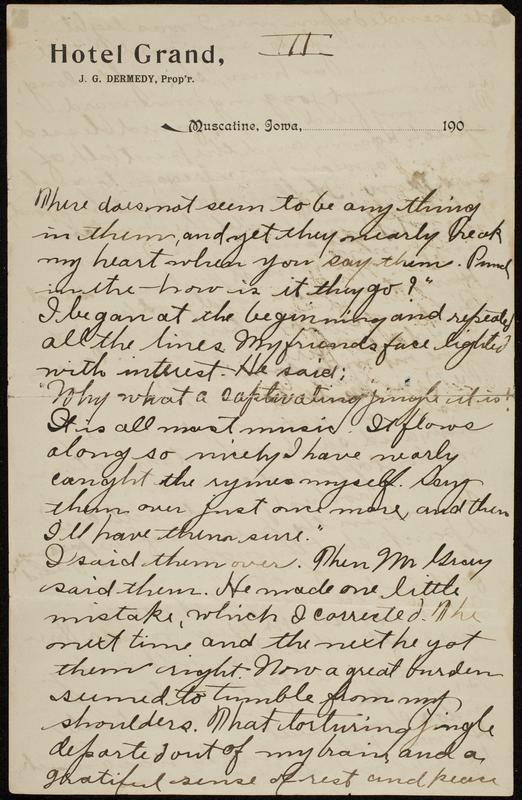 III
Hotel Grand,
J. G. DERMEDY, Prop'r.
Muscatine, Iowa, 190
There does not seem to be any thing
in them, and yet they nearly break
my heart when you say them. Punch
in the—how is it they go?"
I began at the beginning and repeated
all the lines. My friends face lighted
with interest. He said;
"Why what a captivating jingle it is!
It is all most music. It flows
along so nicely I have nearly
caught the rymes myself. Say
them over just one more, and then
I'll have them sure."
I said them over. Then Mr Gray
said them. He made one little
mistake, which I corrected. The
next time and the next he got
them right. Now a great burden
seemed to tumble from my
shoulders. That torturing jingle
departed out of my brain, and a
gratiful sense of rest and peace